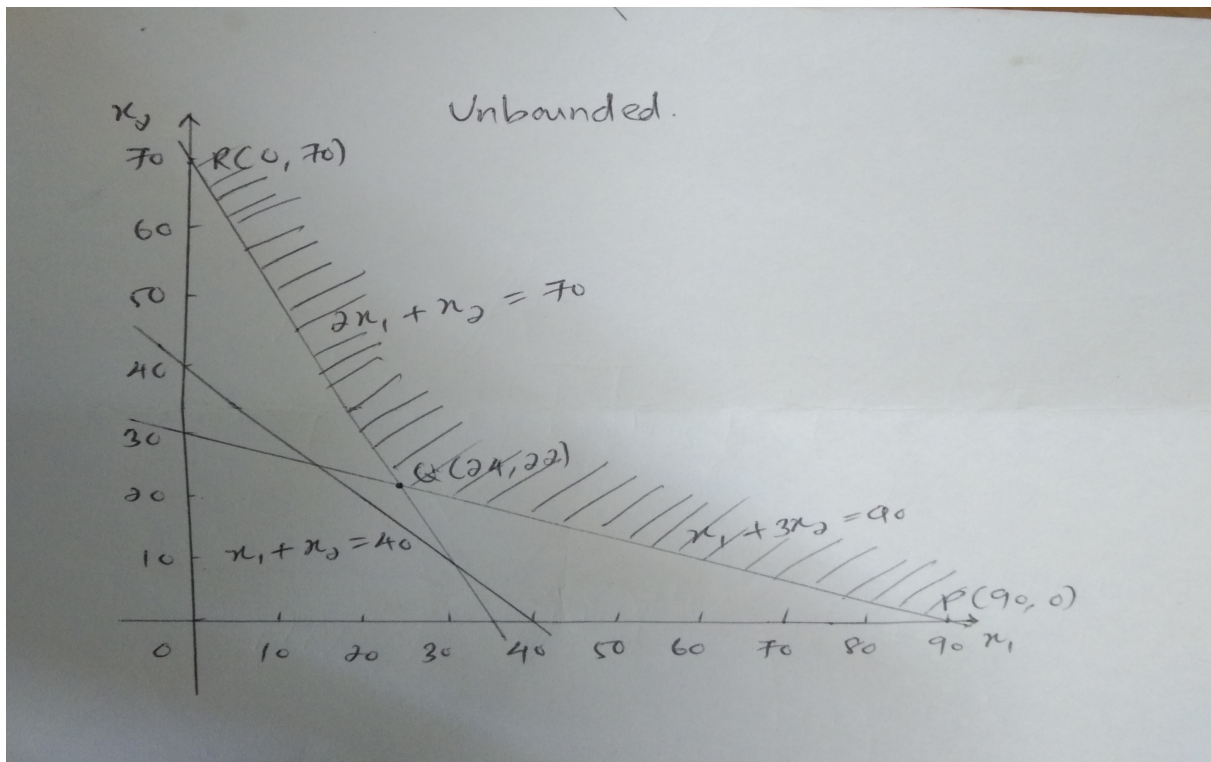 Unbounded.
x₂
70 R(0, 70)
60
50
2x₁ + x₂ = 70
40
30
Q(24,22)
20
x₁ + 3x₂ = 90
10 x₁ + x₂ = 40
P(90, 0)
0 10 20 30 40 50 60 70 80 90 x₁